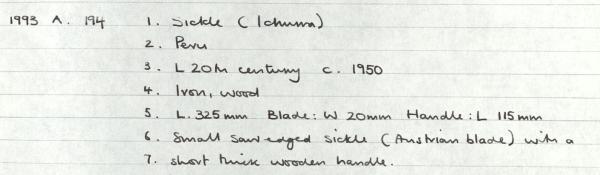 1993 A. 194 1. Sickle (Ichuna)
2. Peru
3. L 20th century c. 1950
4. Iron, wood
5. L. 325mm Blade: W 20mm Handle: L 115mm
6. Small saw edged sickle (Austrian blade) with a
7. short thick wooden handle.